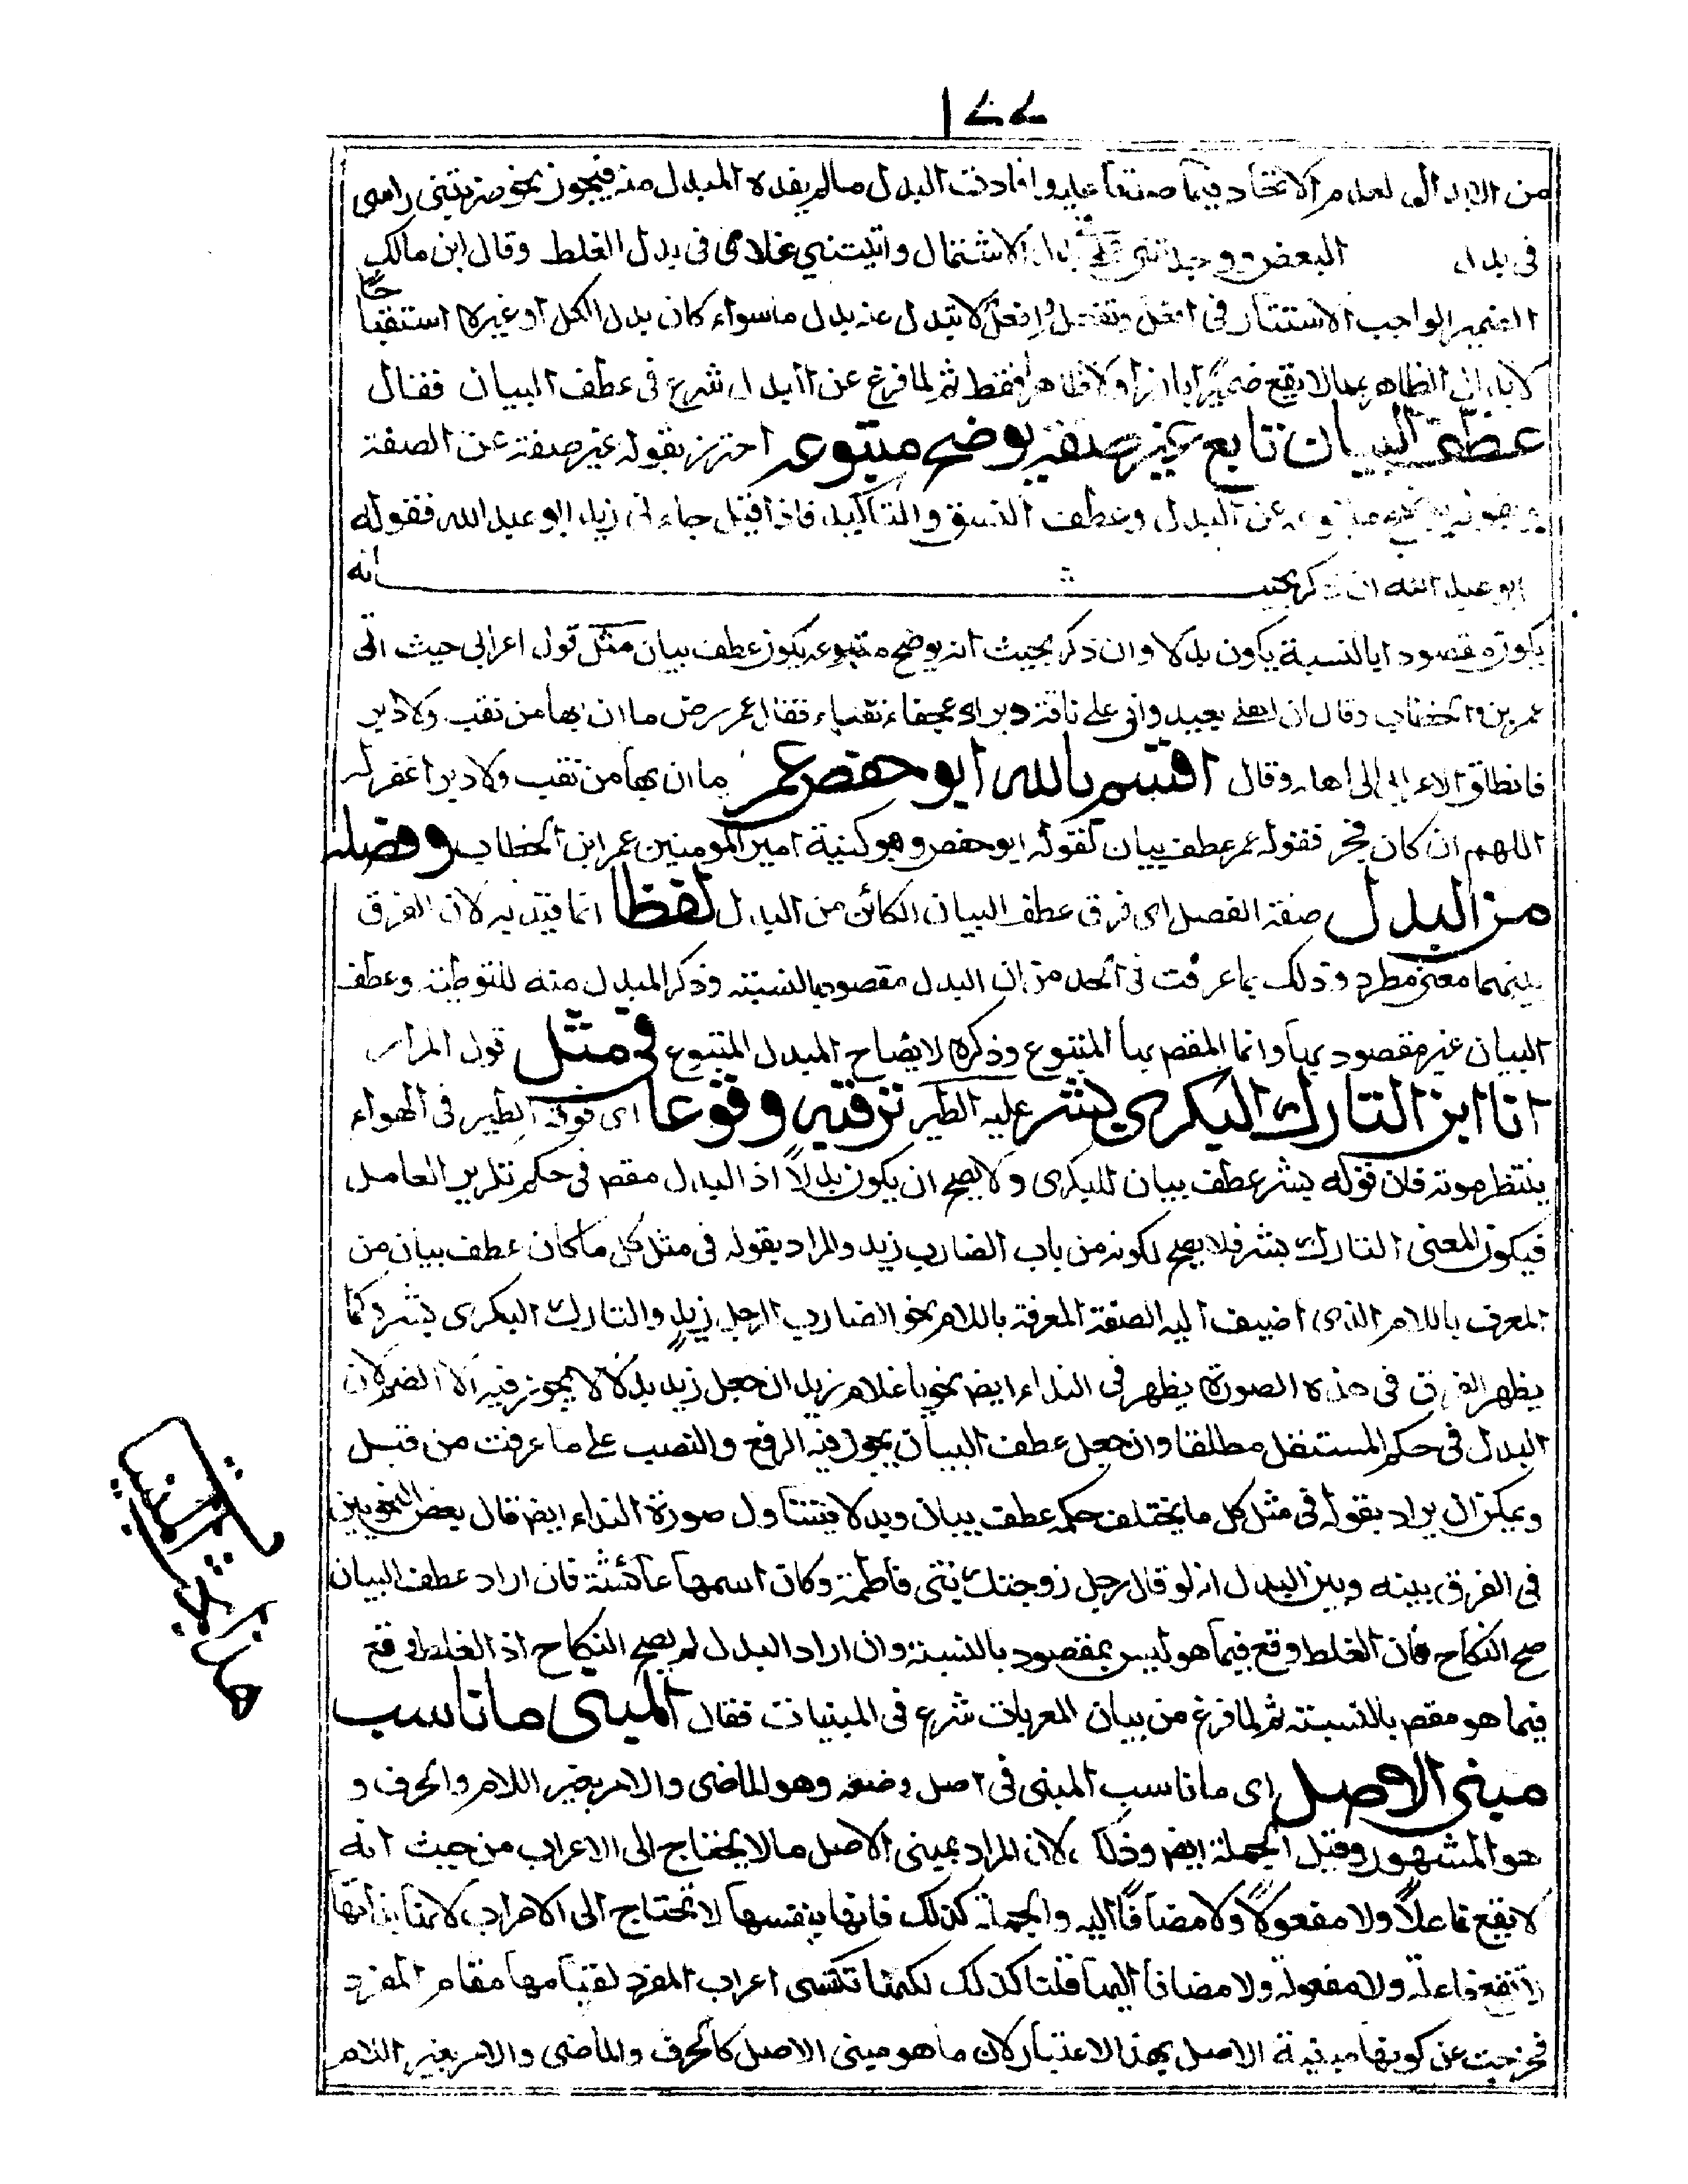 ١٧٧
من الابدال لعدم الاتحاد فيما صدقا عليه وافادت البدل مالم يفده المبدل منه فيجوز نحو ضربتنى راسى
فى بدل البعض ووجدتنى بدل الاشتمال واتيتنى غلامى فى بدل الغلط وقال ابن مالك
الضمير الواجب الاستتار فى افعل وتفعل لا يبدل عنه بدل ما سواء كان بدل الكل او غيره استقباحا
لابدال الظاهر مما لا يقع ضميرا بارزا ولا ظاهرا فقط ثم لما فرغ عن البدل شرع فى عطف البيان فقال
عطف البيان تابع غير صفة يوضح متبوعه احترز بقوله غير صفة عن الصفة
وبقوله يوضح متبوعه عن البدل وعطف النسق والتاكيد فاذا قيل جاءنى زيد ابو عبد الله فقوله
ابو عبد الله ان ذكر بحيث انه
يكون مقصودا بالنسبة يكون بدلا وان ذكر بحيث انه يوضح متبوعه يكون عطف بيان مثل قول اعرابى حيث اتى
عمر بن الخطاب وقال ان اهلى بعيد وانى على ناقة دبراء عجفاء نقباء فقال عمر رض ما ان بها من نقب ولا دبر
فانطلق الاعرابى الى اهله وقال اقسم بالله ابو حفص عمر ما ان بها من نقب ولا دبر اغفر له
اللهم ان كان فجر فقوله عمر عطف بيان لقوله ابو حفص وهو كنية امير المومنين عمر ابن الخطاب وفصله
من البدل صفة الفصل اى فرق عطف البيان الكائن من البدل لفظا انما قيد به لان الفرق
بينهما معنى مطرد وذلك بما عرفت فى الحد من ان البدل مقصود بالنسبة وذكر المبدل منه للتوطئة وعطف
البيان غير مقصود بها وانما المقصم بها المتبوع وذكره لايضاح المبدل المتبوع فى مثل قول المرار
انا ابن التارك البكرى بشر عليه الطير ترقبه وقوعا اى فوقه الطير فى الهواء
ينتظر موته فان قوله بشر عطف بيان للبكرى ولا يصح ان يكون بدلاً اذ البدل مقصم فى حكم تكرير العامل
فيكون المعنى التارك بشر فلا يصح لكونه من باب الضارب زيد والمراد بقوله فى مثل كل ما كان عطف بيان من
المعرف باللام الذى اضيف اليه الصفة المعرفة باللام نحو الضارب الرجل زيدٍ والتارك البكرى بشر وكما
يظهر الفرق فى هذه الصورة يظهر فى النداء ايضم نحو يا غلام زيد ان جعل زيد بدلا لا يجوز فيه الا الضم لان
البدل فى حكم المستقل مطلقا وان جعل عطف البيان يجوز فيه الرفع والنصب على ما عرفت من قبل
ويمكن ان يراد بقوله فى مثل كل ما يختلف حكمه عطف بيان وبدلا فيتناول صورة النداء ايضم قال بعض النحويين
فى الفرق بينه وبين البدل انه لو قال رجل زوجتك بنتى فاطمة وكان اسمها عائشة فان اراد عطف البيان
صح النكاح فان الغلط وقع فيما هو ليس بمقصود بالنسبة وان اراد البدل لم يصح النكاح اذ الغلط وقع
فيما هو مقصم بالنسبة ثم لما فرغ من بيان المعربات شرع فى المبنيات فقال المبنى ما ناسب
مبنى الاصل اى ما ناسب المبنى فى اصل وضعه وهو الماضى والامر بغير اللام والحرف و
هو المشهور وقيل الجملة ايضم وذلك لان المراد بمبنى الاصل ما لا يحتاج الى الاعراب من حيث انه
لا يقع فاعلاً ولا مفعولاً ولا مضافاً اليه والجملة كذلك فانها بنفسها لا تحتاج الى الاعراب لانها بذاتها
لا تقع فاعلة ولا مفعولة ولا مضافا اليها قلنا كذلك لكنها تكتسى اعراب المفرد لقيامها مقام المفرد
فخرجت عن كونها مبنية الاصل بهذا الاعتبار لان ما هو مبنى الاصل كالحرف والماضى والامر بغير اللام